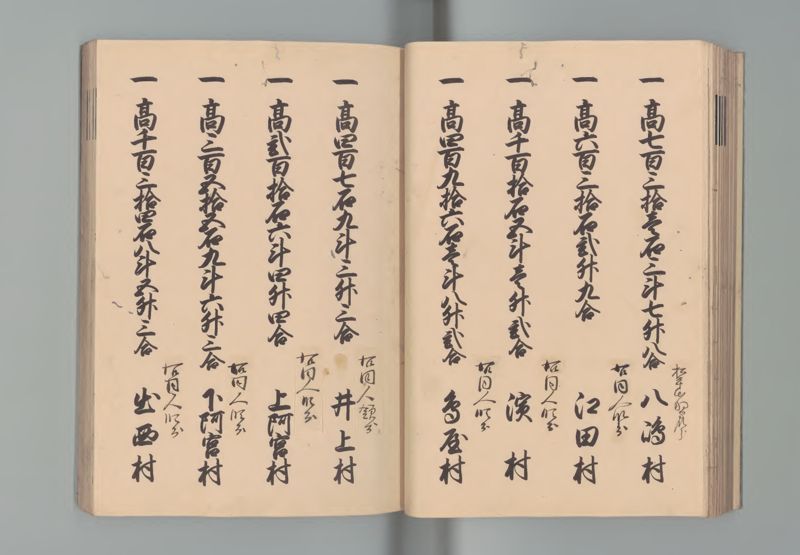 一 高七百三拾壱石三斗七升八合 八嶋村
一 高六百三拾石弐升九合 江田村
右同人
一 高千百拾石五斗壱升弐合 濱村
右同人
一 高四百九拾六石壱斗八升弐合 鳥屋村
右同人
一 高四百七石九斗三升三合 井上村
右同人
一 高弐百拾石六斗四升四合 上阿宮村
右同人
一 高三百五拾五石九斗六升三合 下阿宮村
右同人
一 高千百三拾四石八斗五升三合 出西村
右同人